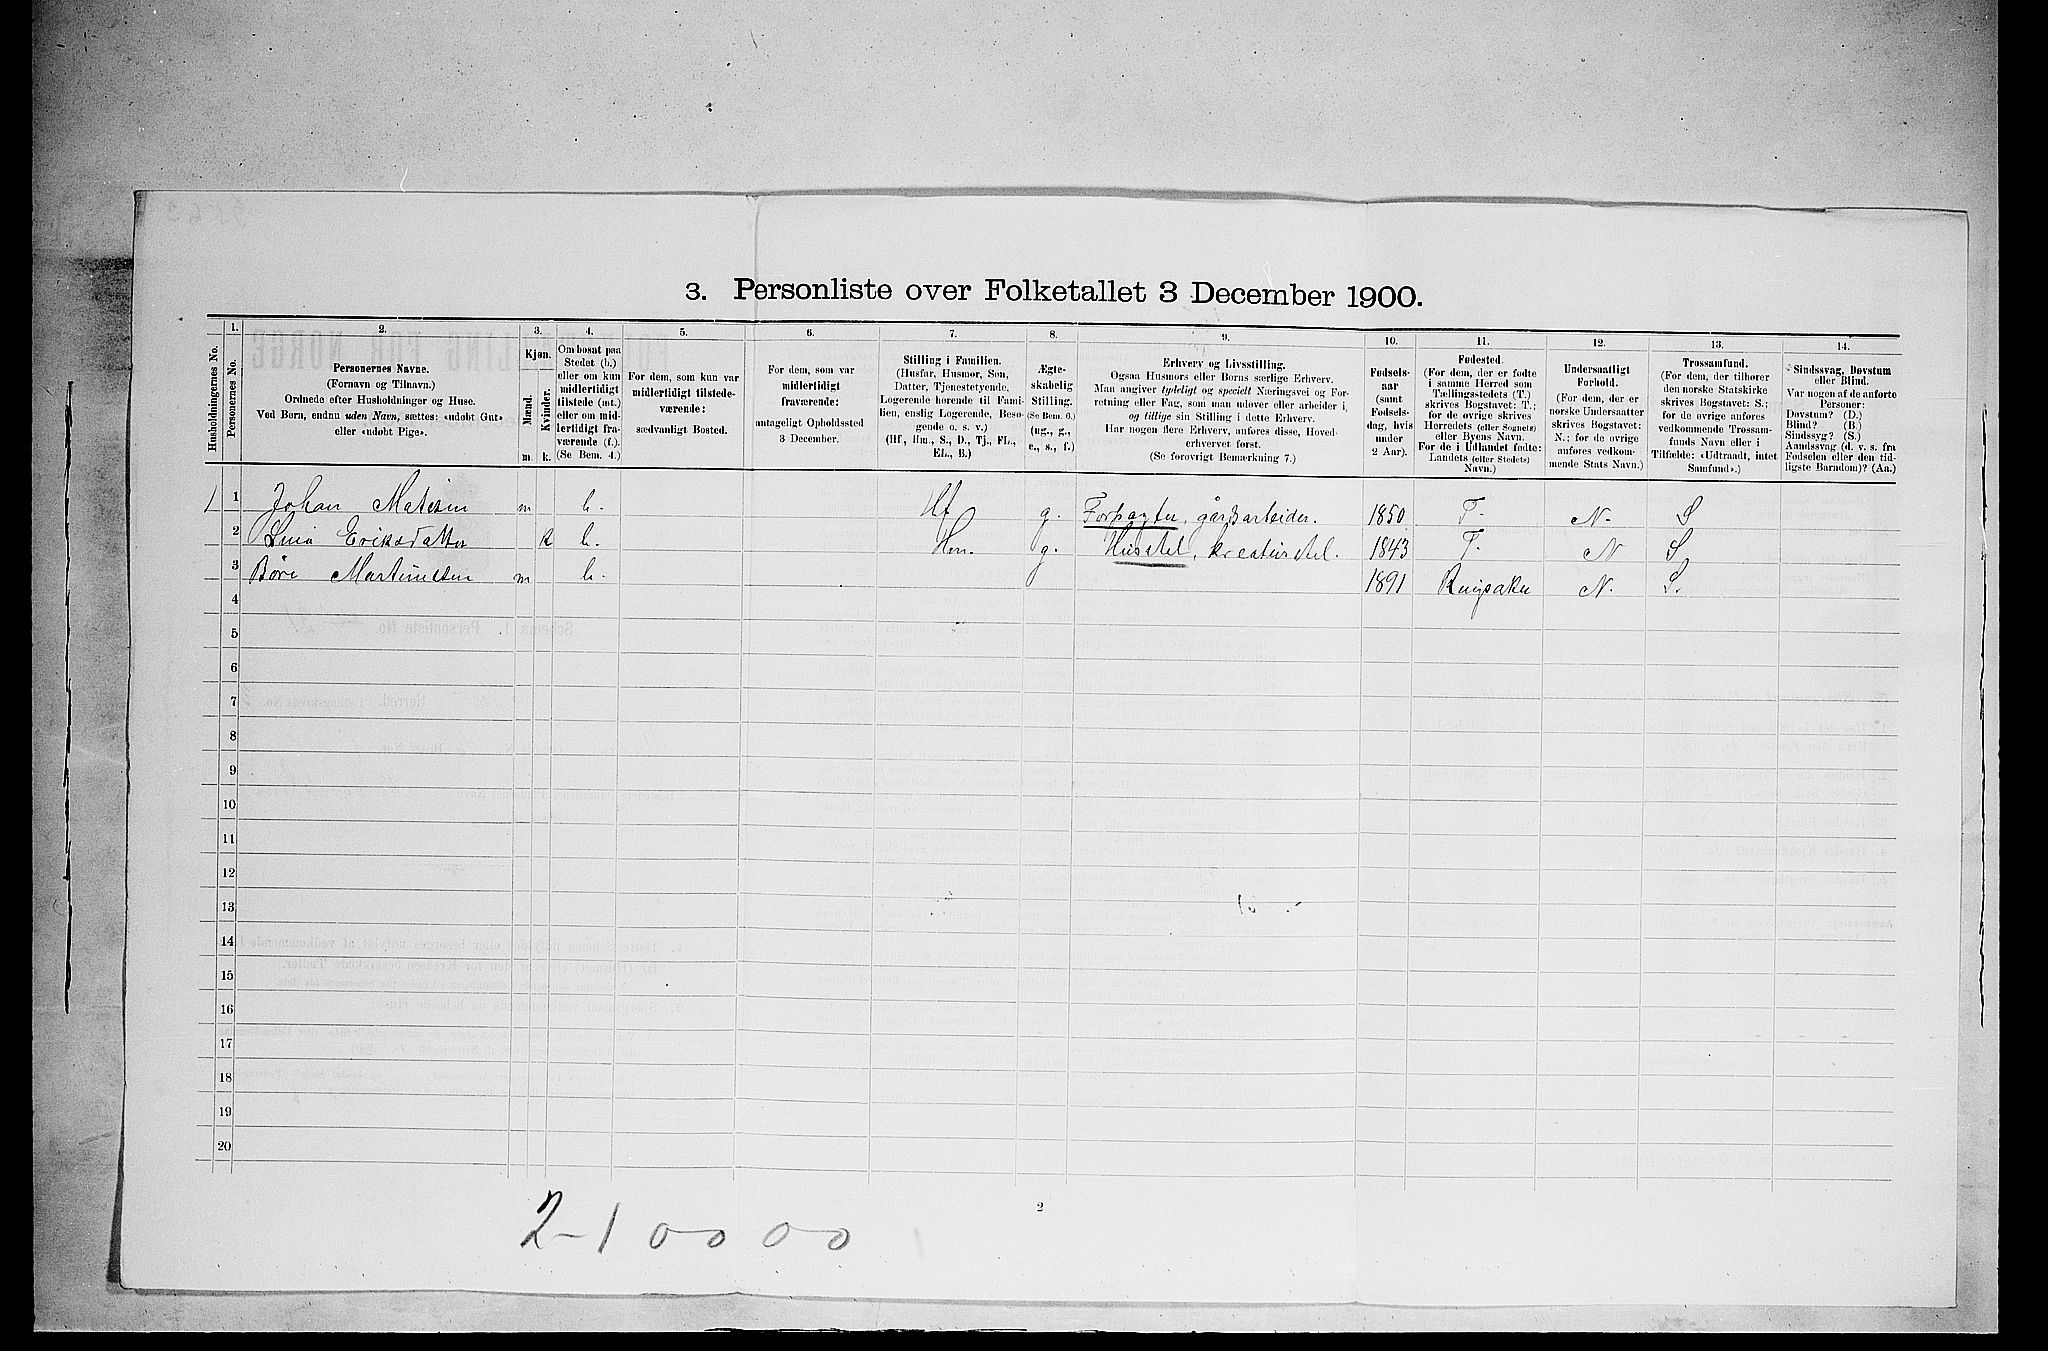 3. Personliste over Folketallet 3 December 1900.
Husholdningernes No.
1. Personernes No.
2. Personernes Navne.
(Fornavn og Tilnavn.)
Ordnede efter Husholdninger og Huse.
Ved Børn, endnu uden Navn, sættes: «udøbt Gut»
eller «udøbt Pige».
3. Kjøn.
Mænd. Kvinder.
m. k.
4. Om bosat paa
Stedet (b.)
eller om kun
midlertidigt
tilstede (mt.)
eller om mid-
lertidigt fra-
værende (f.).
(Se Bem. 4.)
5. For dem, som kun var
midlertidigt tilstede-
værende:
sædvanligt Bosted.
6. For dem, som var
midlertidigt
fraværende:
antageligt Opholdssted
3 December.
7. Stilling i Familien.
(Husfar, Husmor, Søn,
Datter, Tjenestetyende,
Logerende hørende til Fami-
lien, enslig Logerende, Besø-
gende o. s. v.)
(Hf, Hm., S., D., Tj., FL.,
EL., B.)
8. Ægte-
skabelig
Stilling.
(Se Bem. 6.)
(ug., g.,
e., s., f.)
9. Erhverv og Livsstilling.
Ogsaa Husmors eller Børns særlige Erhverv.
Man angiver tydeligt og specielt Næringsvei og For-
retning eller Fag, som man udøver eller arbeider i,
og tillige sin Stilling i dette Erhverv.
Har nogen flere Erhverv, anføres disse, Hoved-
erhvervet først.
(Se forøvrigt Bemærkning 7.)
10. Fødsels-
aar
(samt
Fødsels-
dag, hvis
under
2 Aar).
11. Fødested.
(For dem, der er fødte
i samme Herred som
Tællingsstedets (T.)
skrives Bogstavet: T.;
for de øvrige skrives
Herredets (eller Sognets)
eller Byens Navn.
For de i Udlandet fødte:
Landets (eller Stedets)
Navn.)
12. Undersaatligt
Forhold.
(For dem, der er
norske Undersaatter
skrives Bogstavet:
N.; for de øvrige
anføres vedkom-
mende Stats Navn.)
13. Trossamfund.
(For dem, der tilhører
den norske Statskirke
skrives Bogstavet: S.;
for de øvrige anføres
vedkommende Trossam-
funds Navn eller i
Tilfælde: «Udtraadt, intet
Samfund».)
14. Sindssvag, Døvstum
eller Blind.
Var nogen af de anførte
Personer:
Døvstum? (D.)
Blind? (B.)
Sindssyg? (S.)
Aandssvag (d. v. s. fra
Fødselen eller den tid-
ligste Barndom)? (Aa.)
1 1 Johan m b. Hf g. Forpagter, gårdsarbeider. 1850 T. N. S
2 Eriksdatter k b. Hm. g. Husstel, kreaturstel. 1843 T. N S.
3 Martinusen m b. 1891 Ringsaker N. S.
4
5
6
7
8
9
10
11
12
13
14
15
16
17
18
19
20
2-1 0-0 0-0
2